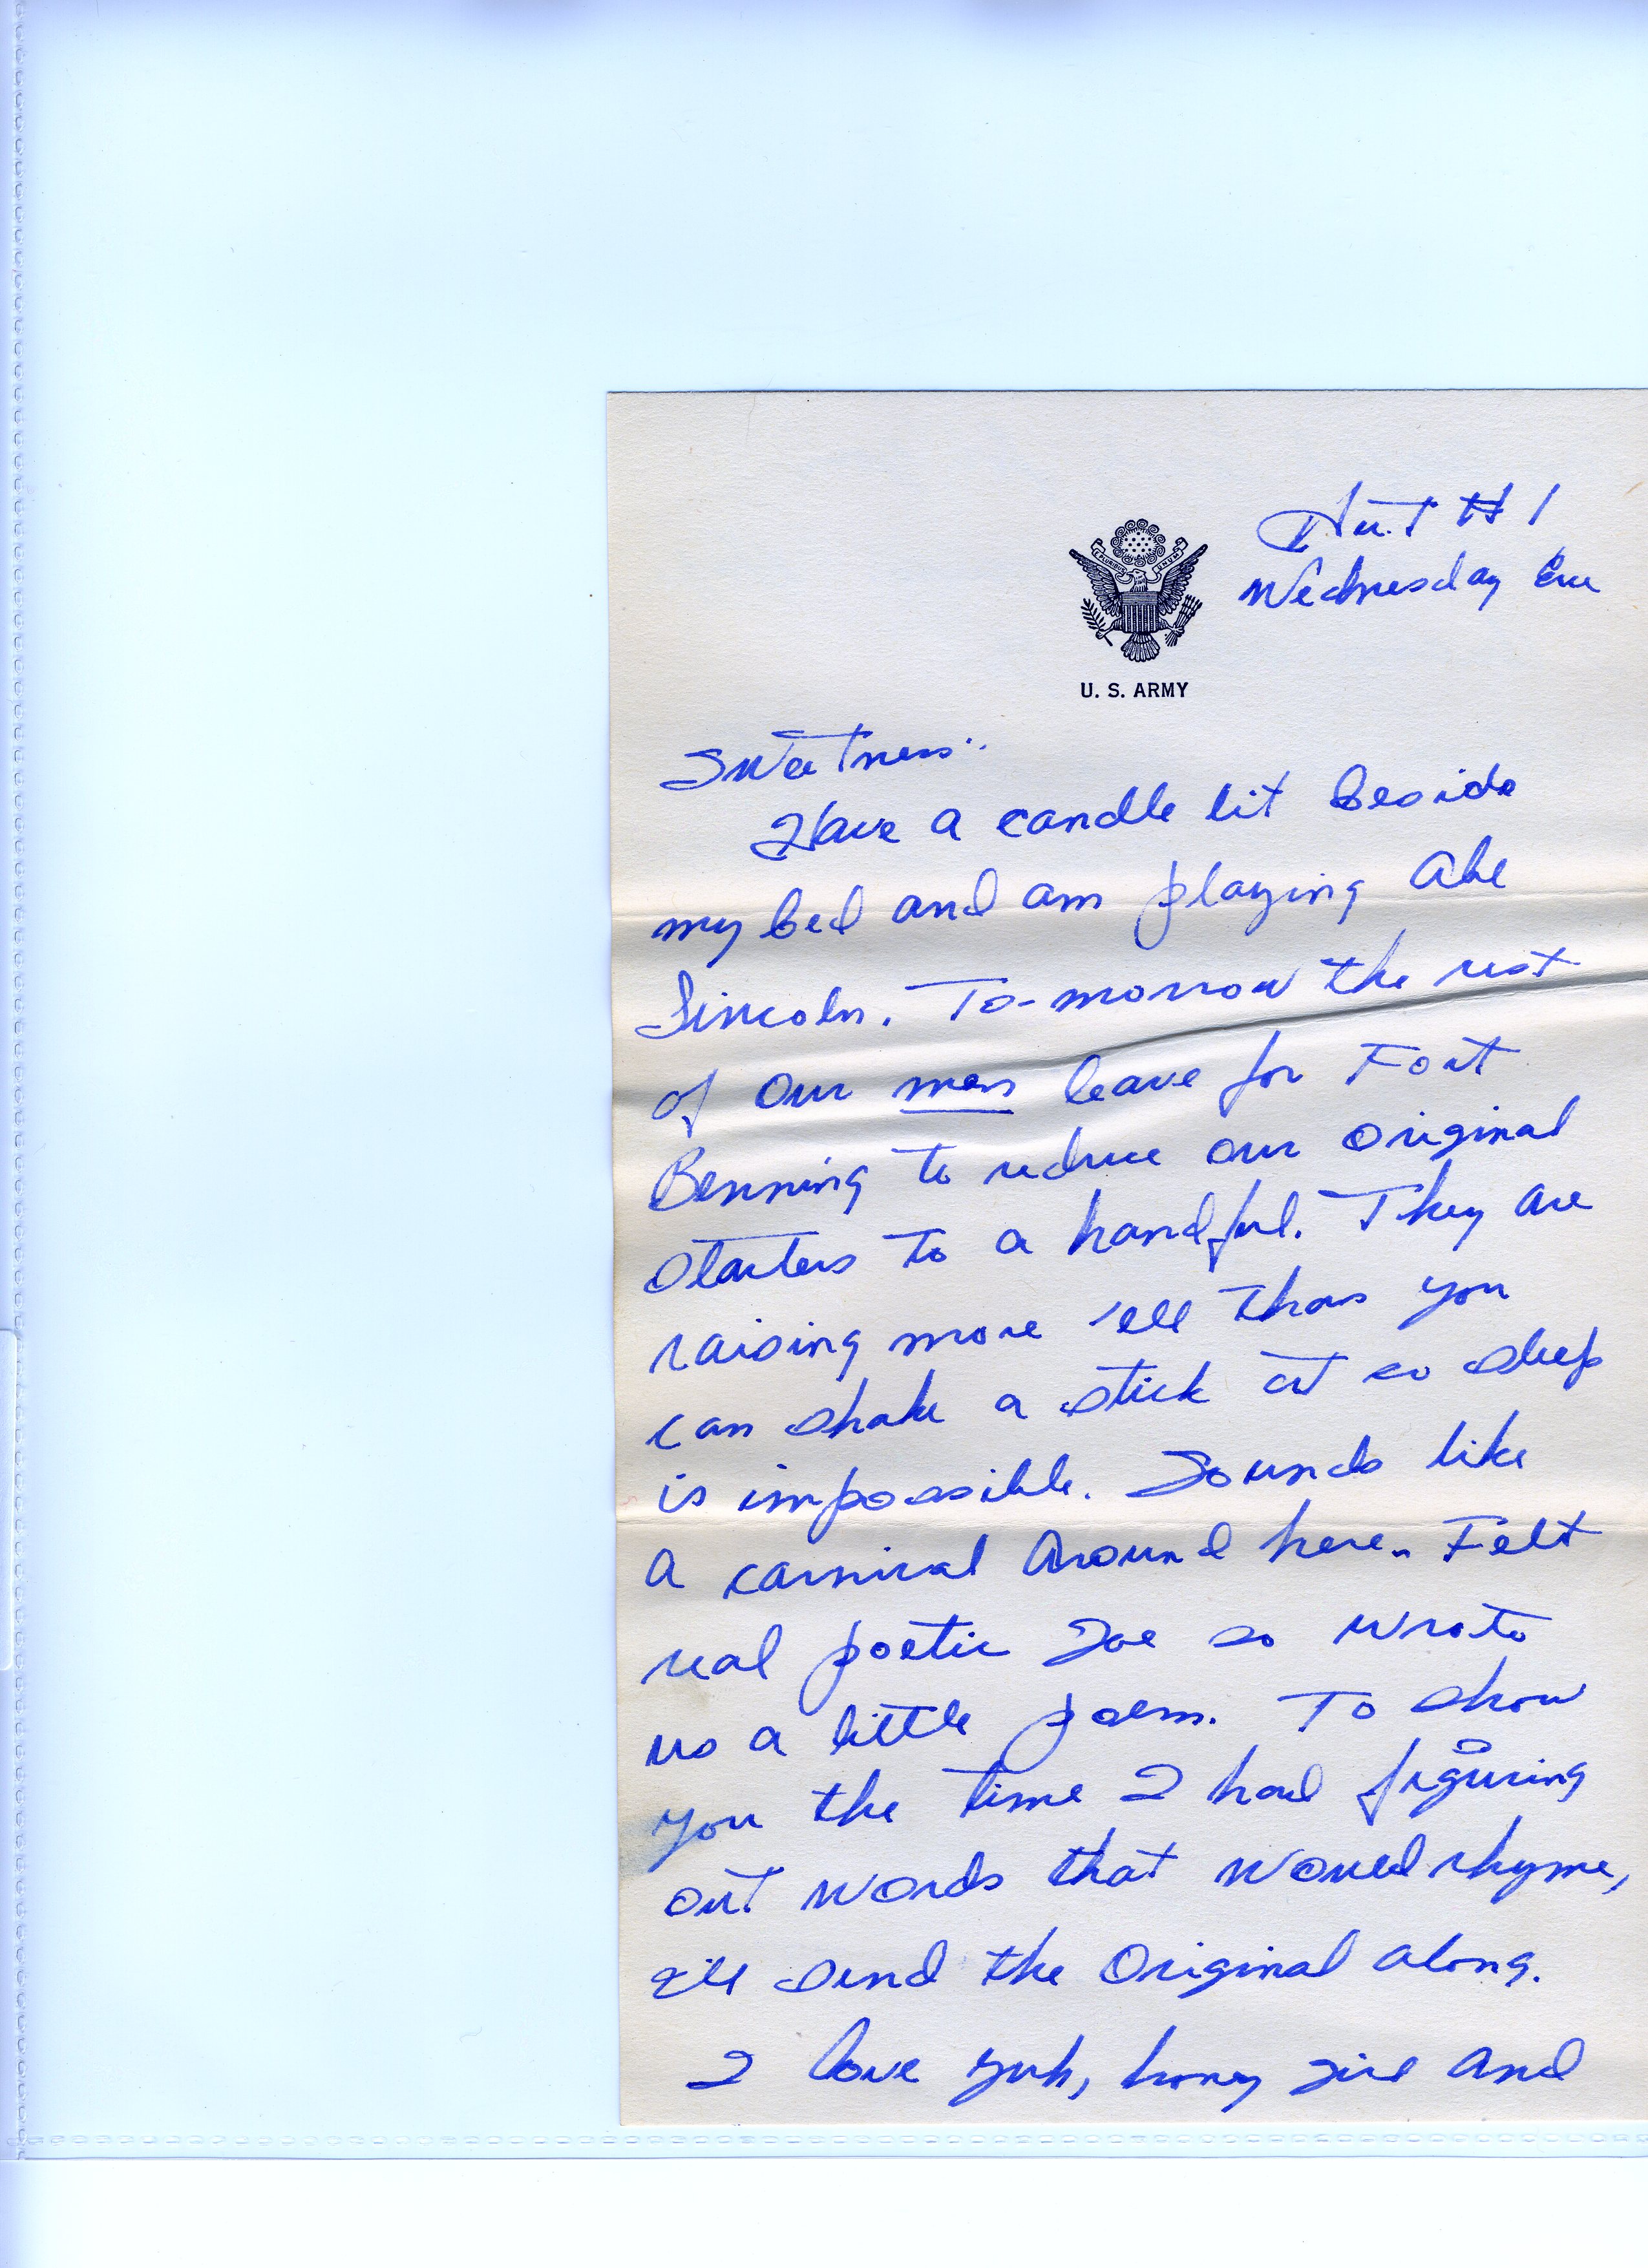 Hut # 1
Wednesday Eve
U. S. ARMY
Sweetness:
Have a candle lit beside
my bed and am playing Abe
Lincoln. To-morrow the rest
of our men leave for Fort
Benning to reduce our original
starters to a handful. They are
raising more 'ell than you
can shake a stick at so sleep
is impossible. Sounds like
a carnival around here. Felt
real poetic Joe so wrote
us a little poem. To show
you the time I had figuring
out words that would rhyme,
I'll send the original along.
I love yuh, honey girl and